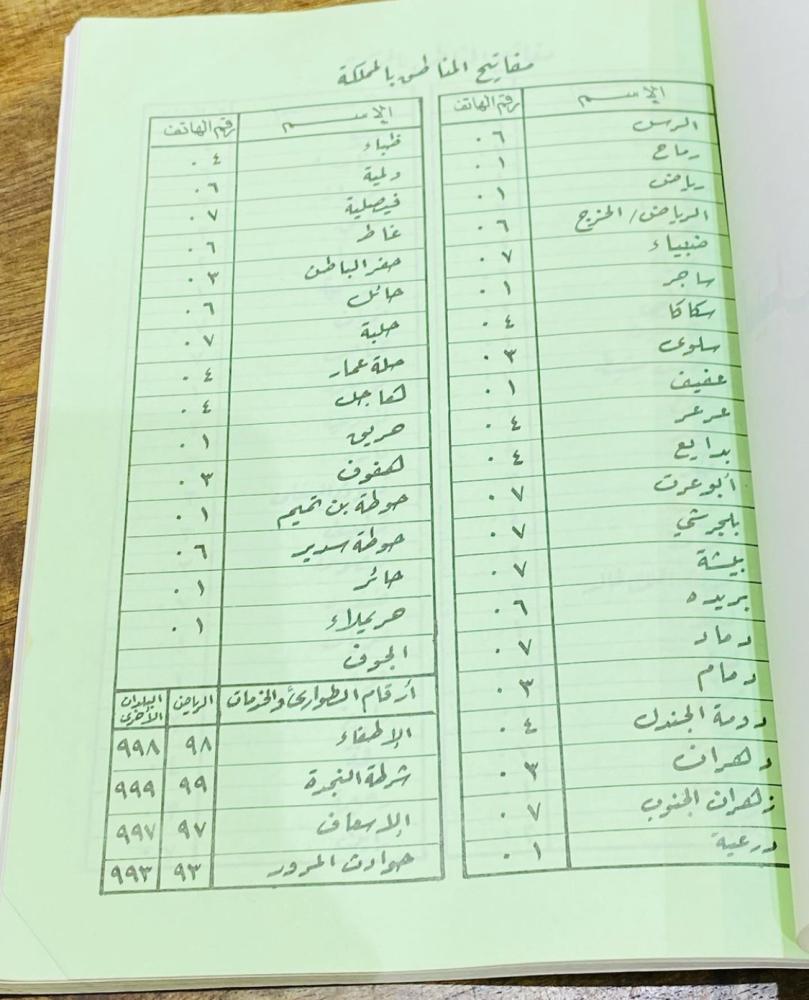 مفاتيح المناطق بالمملكة
الإسم رقم الهاتف
الرس ٠٦
رماح ٠١
رياض ٠١
الرياض/الخرج ٠٦
ضبياء ٠٧
ساجر ٠١
سكاكا ٠٤
سلوى ٠٣
عفيف ٠١
عرعر ٠٤
بدايع ٠٤
أبوعرت ٠٧
بلجرشي ٠٧
بيشة ٠٧
بريده ٠٦
دماد ٠٧
دمام ٠٣
دومة الجندل ٠٤
دهران ٠٣
زهران الجنوب ٠٧
درعية ٠١
الإسم رقم الهاتف
ظباء ٠٤
دلمية ٠٦
فيصلية ٠٧
غاط ٠٦
حفر الباطن ٠٣
حائل ٠٦
حلبة ٠٧
حلة عمار ٠٤
هاجل ٠٤
حريق ٠١
هفوف ٠٣
حوطة بن تميم ٠١
حوطة سدير ٠٦
حائر ٠١
حريملاء ٠١
الجوف
أرقام الطوارئ والخدمات الرياض البلدان الأخرى
الإطفاء ٩٨ ٩٩٨
شرطة النجدة ٩٩ ٩٩٩
الإسعاف ٩٧ ٩٩٧
حوادث المرور ٩٣ ٩٩٣